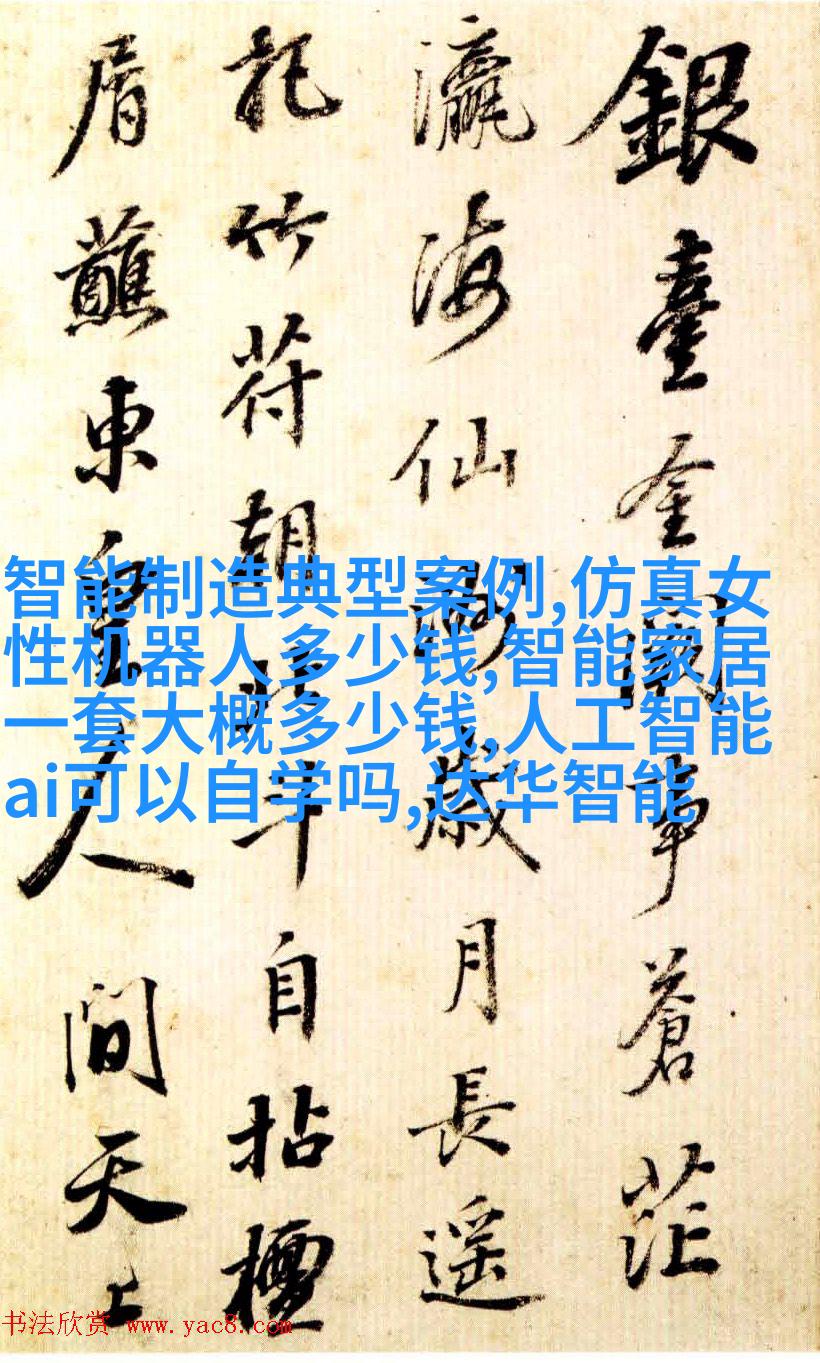 銀臺金闕事蒼茫
瀛海仙歲月長遥
記竹符朝北斗自拈檀
屑蘸東皇人間天上
智能制造典型案例,仿真女
性机器人多少钱,智能家居
一套大概多少钱,人工智能
ai可以自学吗,达华智能
书法欣赏 www.yac8.com